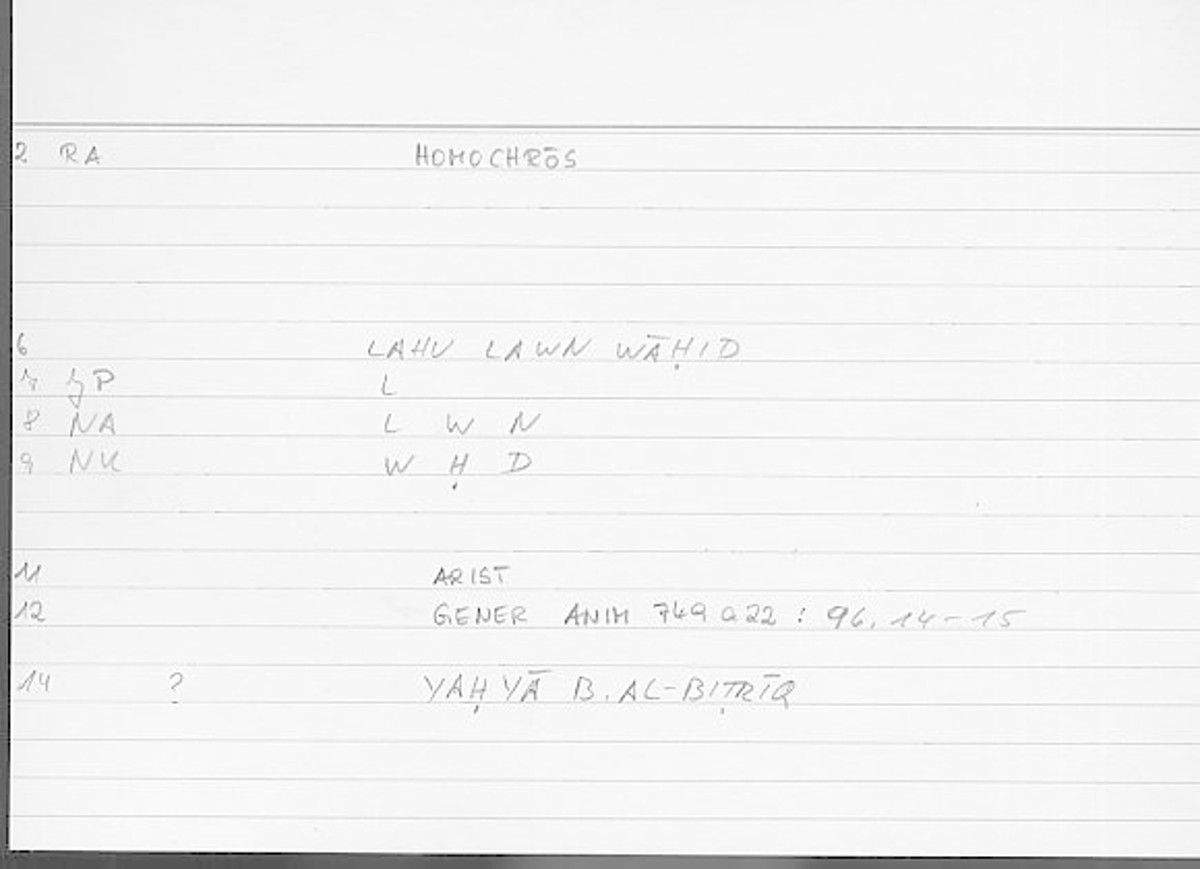 2 RA HOMOCHRŌS
6 LAHU LAWN WĀḤID
7 P L
8 NA L W N
9 NK W Ḥ D
11 ARIST
12 GENER ANIM 749a22 : 96,14-15
14 ? YAḤYĀ B. AL-BIṬRĪQ